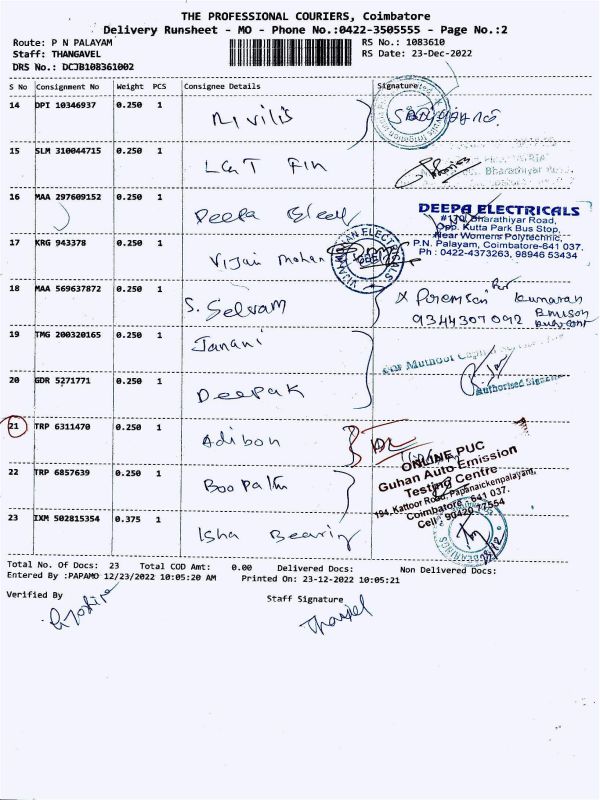 THE PROFESSIONAL COURIERS, Coimbatore
Delivery Runsheet - MO - Phone No.:0422-3505555 - Page No.:2
Route: P N PALAYAM
Staff: THANGAVEL
DRS No.: DCJB108361002
RS No.: 1083610
RS Date: 23-Dec-2022
S No Consignment No Weight PCS Consignee Details Signature
14 DPI 10346937 0.250 1
15 SLM 310044715 0.250 1 L&T Fin
Bharathiyar Road,
16 MAA 297609152 0.250 1 Deepa Elect
DEEPA ELECTRICALS
Bharathiyar Road,
Opp. Kutta Park Bus Stop,
Near Womens Polytechnic,
P.N. Palayam, Coimbatore-641 037.
Ph : 0422-4373263, 98946 53434
17 KRG 943378 0.250 1 Vijai Mohan
18 MAA 569637872 0.250 1 S. Selvam
9344307092
19 TMG 200320165 0.250 1 Janani
For Muthoot
20 GDR 5271771 0.250 1 Deepak
Authorised
21 TRP 6311470 0.250 1 Adibon
ONLINE PUC
Guhan Auto Emission
Testing Centre
194, Kattoor Road, Papanaickenpalayam,
Coimbatore - 641 037.
22 TRP 6857639 0.250 1 Boopathi
23 IXM 502815354 0.375 1 Isha Bearing
Total No. Of Docs: 23 Total COD Amt: 0.00 Delivered Docs: Non Delivered Docs:
Entered By :PAPAMO 12/23/2022 10:05:20 AM Printed On: 23-12-2022 10:05:21
Verified By Staff Signature